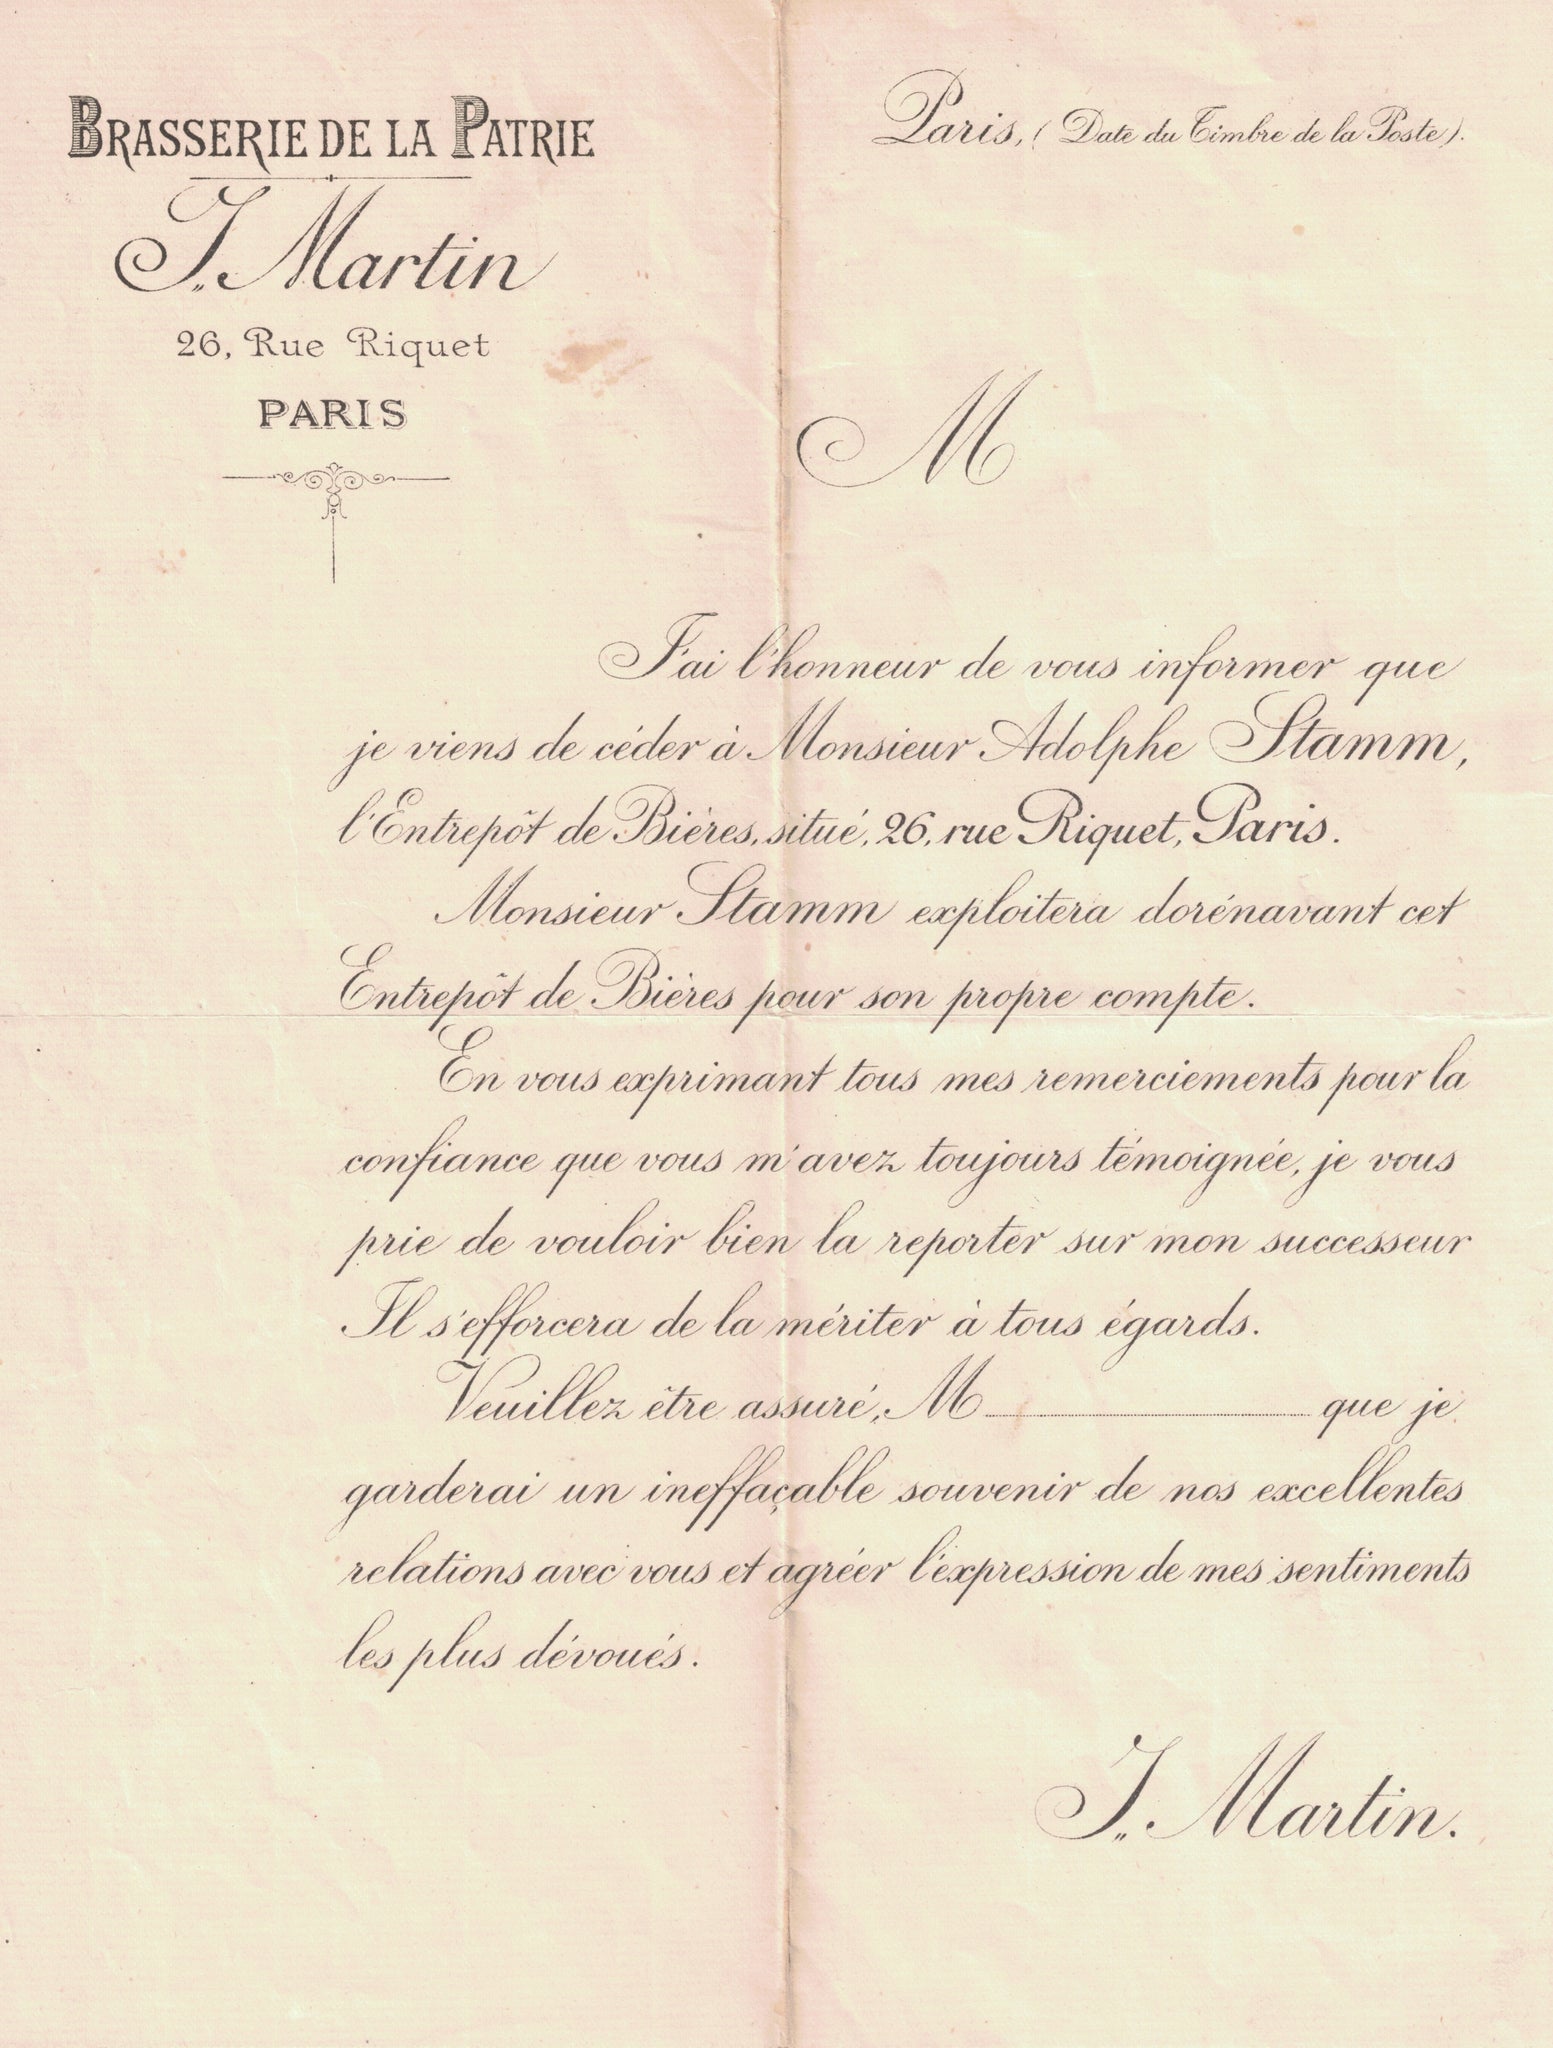 BRASSERIE DE LA PATRIE
J. Martin
26, Rue Riquet
PARIS
Paris, (Date du Timbre de la Poste).
M
J'ai l'honneur de vous informer que
je viens de céder à Monsieur Adolphe Stamm,
l'Entrepôt de Bières, situé, 26, rue Riquet, Paris.
Monsieur Stamm exploitera dorénavant cet
Entrepôt de Bières pour son propre compte.
En vous exprimant tous mes remerciements pour la
confiance que vous m'avez toujours témoignée, je vous
prie de vouloir bien la reporter sur mon successeur
Il s'efforcera de la mériter à tous égards.
Veuillez être assuré, M que je
garderai un ineffaçable souvenir de nos excellentes
relations avec vous et agréer l'expression de mes sentiments
les plus dévoués.
J. Martin.